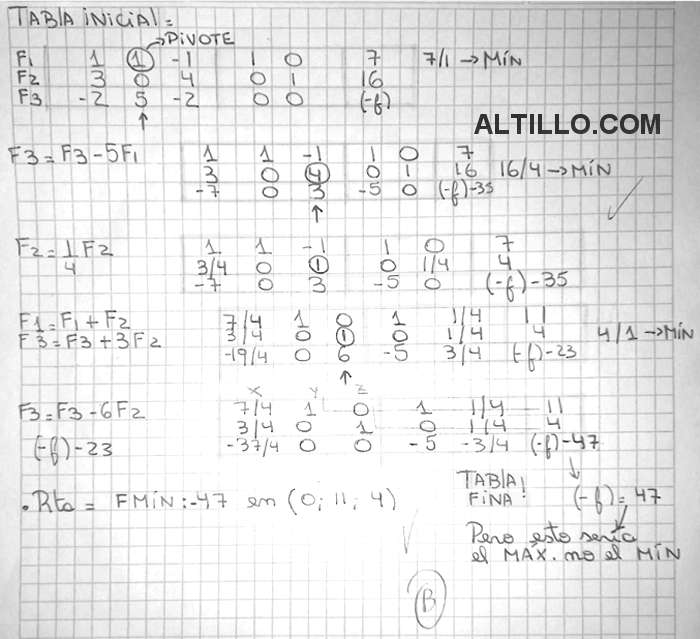 TABLA INICIAL =
→ PIVOTE
F1 1 1 -1 1 0 7 7/1 → MÍN
F2 3 0 4 0 1 16
F3 -2 5 -2 0 0 (-f)
↑
ALTILLO.COM
F3 = F3 - 5F1 1 1 -1 1 0 7
3 0 4 0 1 16 16/4 → MÍN
-7 0 3 -5 0 (-f)-35
↑
F2 = 1/4 F2 1 1 -1 1 0 7
3/4 0 1 0 1/4 4
-7 0 3 -5 0 (-f)-35
F1 = F1 + F2 7/4 1 0 1 1/4 11
F3 = F3 + 3F2 3/4 0 1 0 1/4 4 4/1 → MÍN
-19/4 0 6 -5 3/4 (-f)-23
↑
X Y Z
F3 = F3 - 6F2 7/4 1 0 1 1/4 11
3/4 0 1 0 1/4 4
(-f)-23 -37/4 0 0 -5 -3/4 (-f)-47
↓
• Rta = FMÍN: -47 en (0; 11; 4)
TABLA FINAL (-f) = 47
Pero esto sería
el MÁX. no el MÍN
B